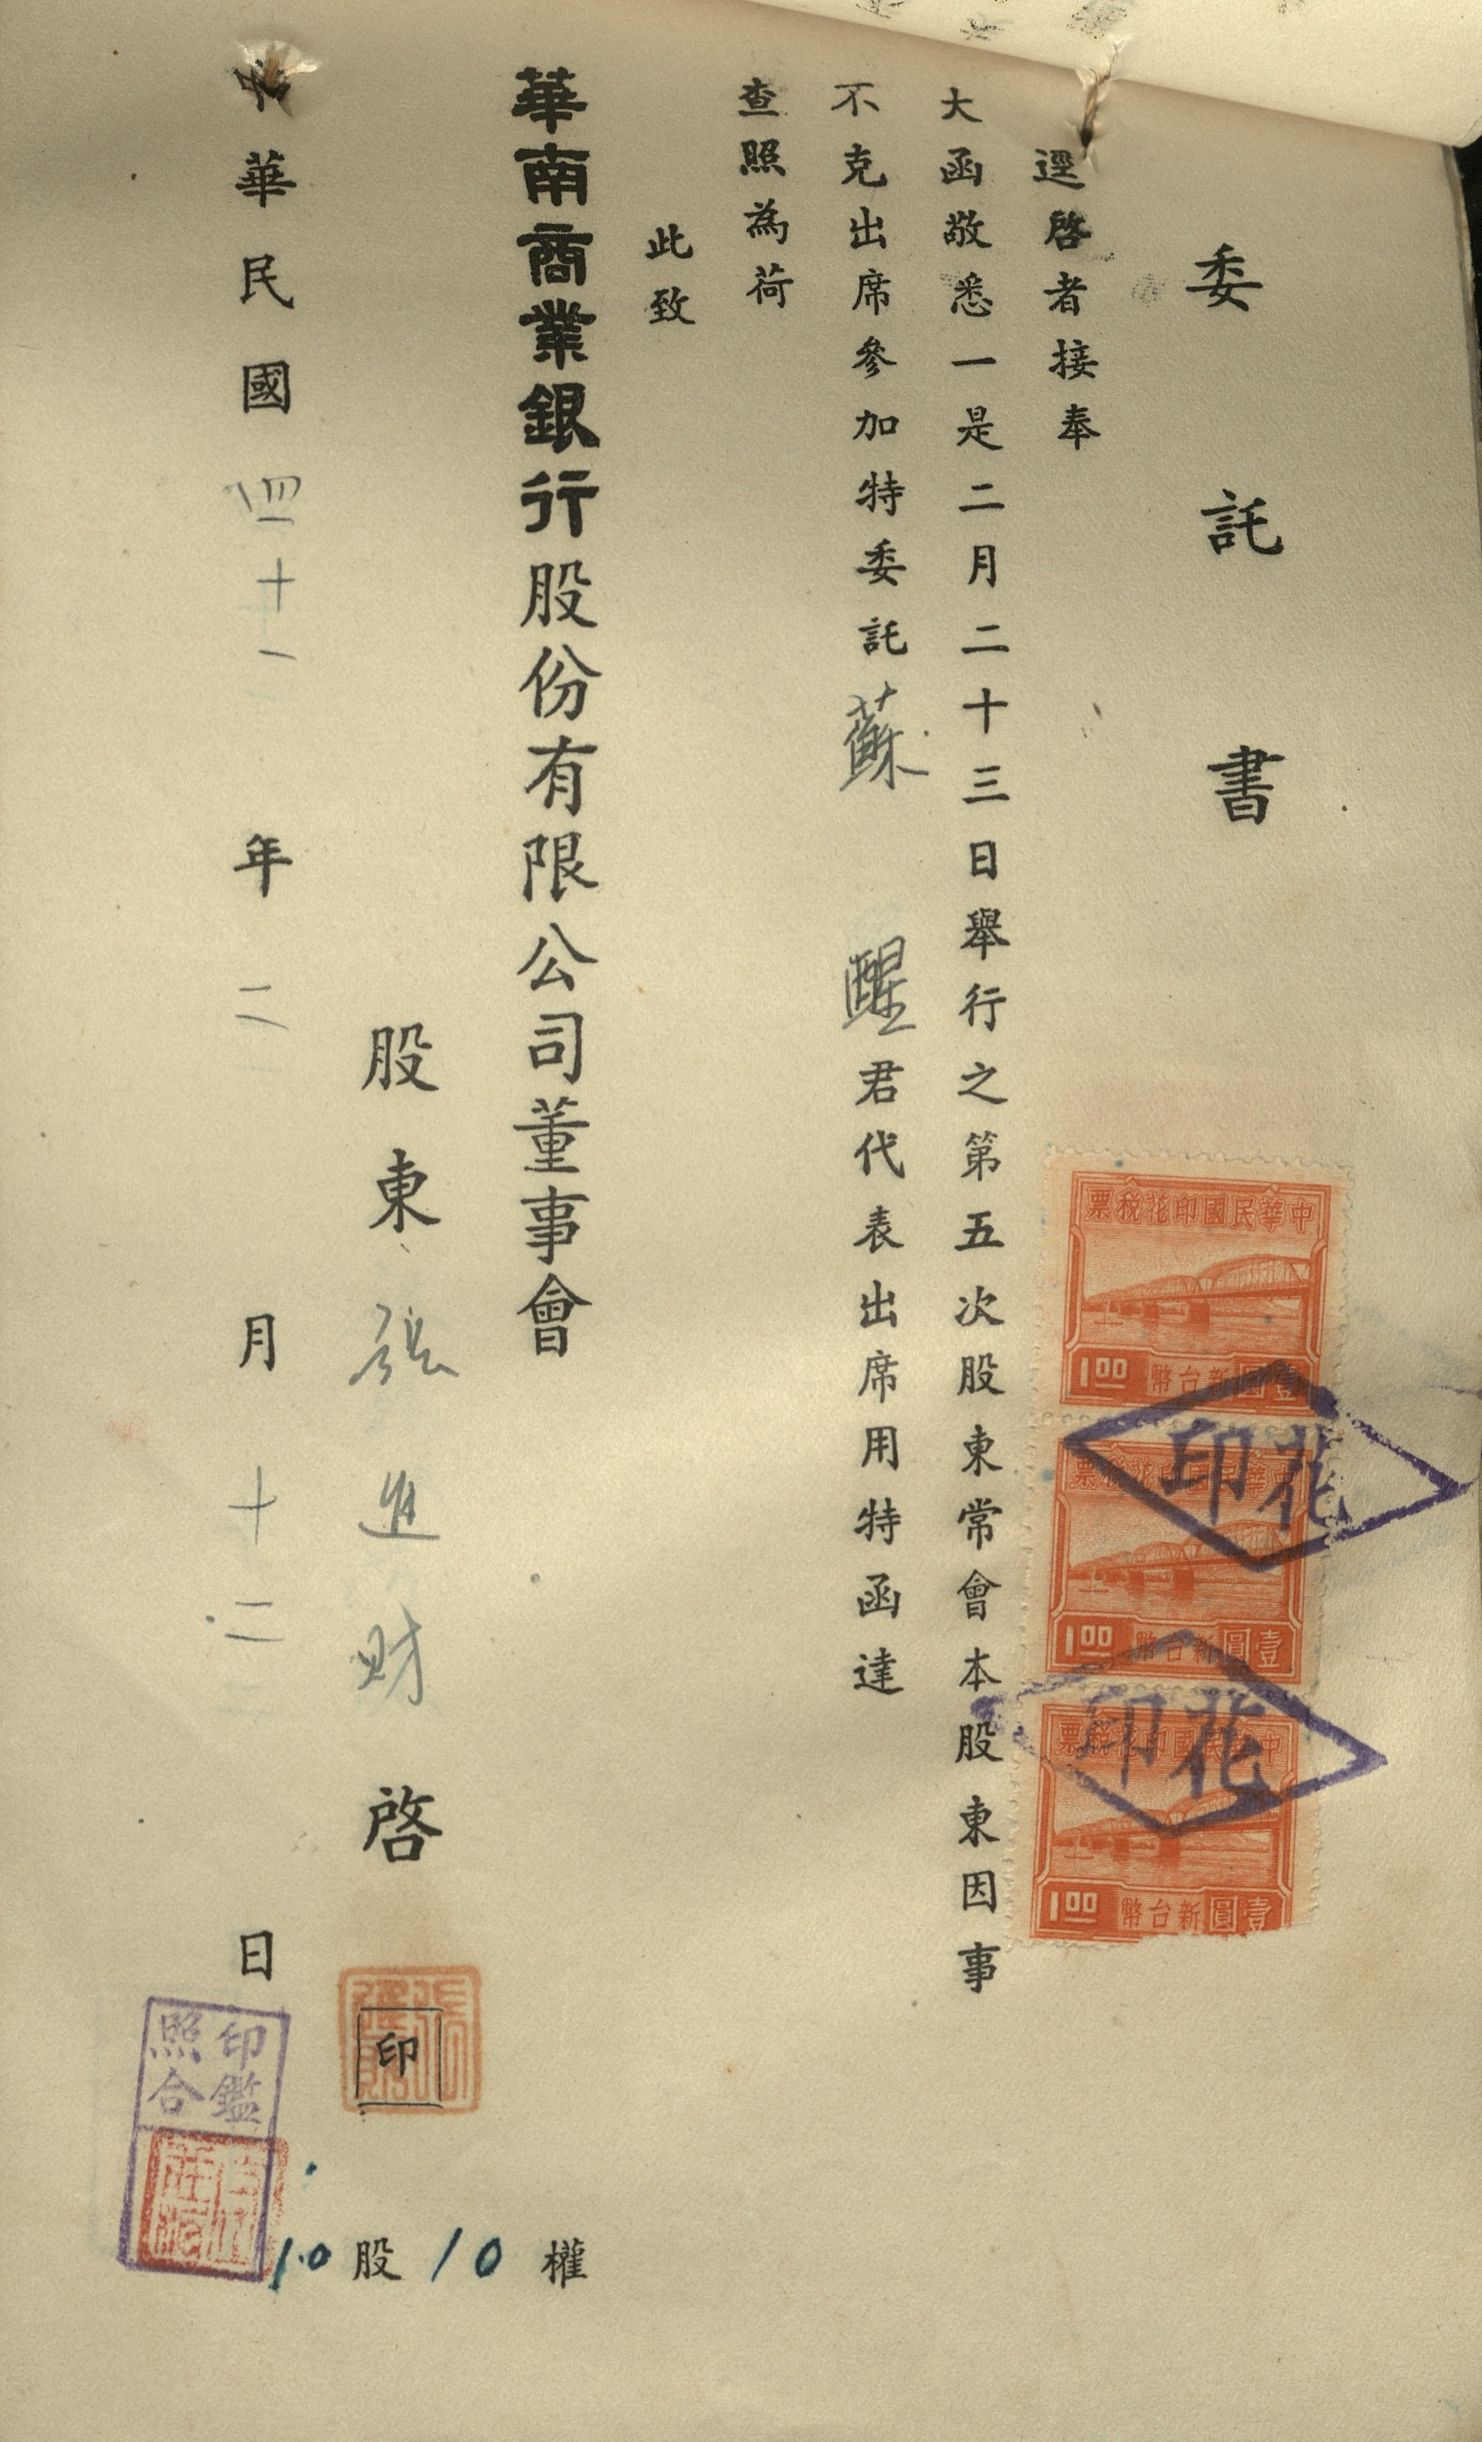 委託書
逕啓者接奉
大函敬悉一是二月二十三日舉行之第五次股東常會本股東因事
不克出席參加特委託蘇醒君代表出席用特函達
查照為荷
此致
華南商業銀行股份有限公司董事會
股東張進財啓
印
中華民國四十一年二月十二日
10股10權
印鑑
照合
中華民國印花稅票
壹圓新台幣
1.00
花印
中華民國印花稅票
壹圓新台幣
1.00
花印
中華民國印花稅票
壹圓新台幣
1.00